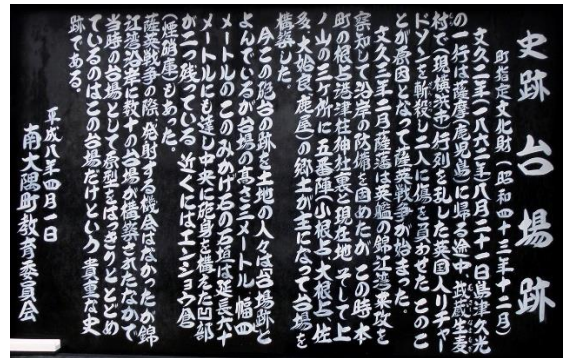 史跡 台場跡
町指定文化財(昭和四十三年十二月)
文久二年(一八六二年)八月二十一日島津久光
の一行は薩摩(鹿児島)に帰る途中、武蔵生麦
村で(現横浜市)行列を乱した英国人リチャー
ドソンを斬殺し二人に傷を負わせた このこ
とが原因となって薩英戦争が始まった。
文久三年二月薩藩は英艦の錦江湾来攻を
察知して沿岸の防備を固めたが この時本
町の根占港津柱神社裏と現在地 そして上
ノ山の三ケ所に五番陣(小根占、大根占、佐
多、大姶良、鹿屋)の郷士が主になって台場を
構築した。
今この砲台の跡を土地の人々は「台場跡」と
よんでいるが台場の高さ三メートル、幅四
メートルのこのみかげ石の石垣は延長六十
メートルにも達し中央に砲身を構えた凹部
が二つ残っている 近くにはエンショウ倉
(煙硝庫)もあった。
薩英戦争の際、発射する機会はなかったが錦
江湾沿岸に数十の台場が構築されたなかで
当時の台場として原型をはっきりととどめ
ているのはこの台場だけという 貴重な史
跡である。
平成八年四月一日
南大隅町教育委員会